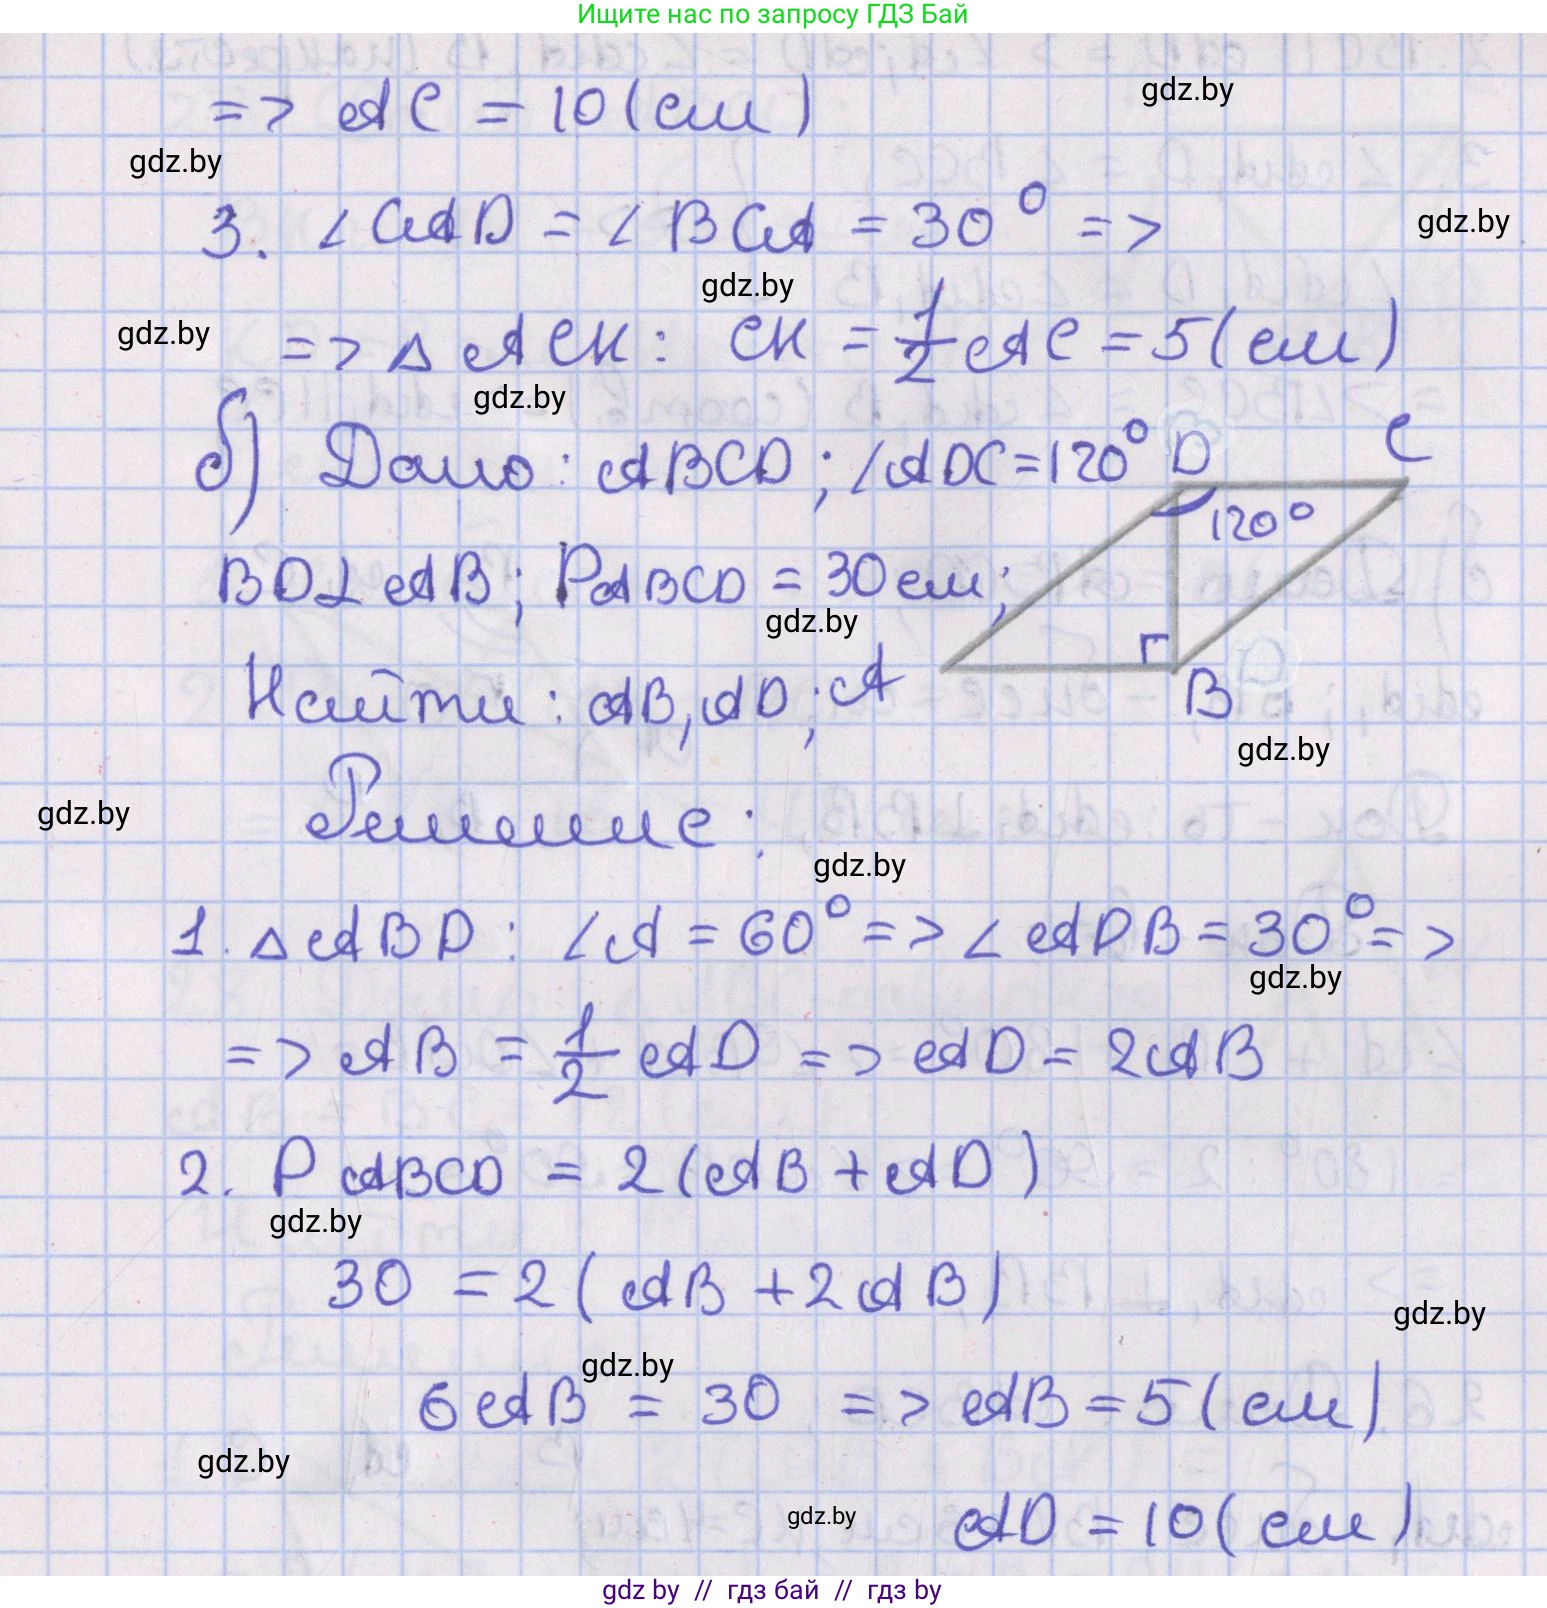 Ищите нас по запросу ГДЗ Бай
=> AC = 10 (см)
gdz.by
gdz.by
3. ∠CAD = ∠BCA = 30° =>
gdz.by
gdz.by
=> △ ACK: CK = 1/2 AC = 5 (см)
gdz.by
gdz.by
б) Дано: ABCD; ∠ADC = 120°
D C
120°
BD⊥AB; PABCD = 30 см;
gdz.by
Найти: AB, AD;
A
B
gdz.by
Решение:
gdz.by
gdz.by
1. △ABD: ∠A = 60° => ∠ADB = 30° =>
gdz.by
=> AB = 1/2 AD => AD = 2AB
2. PABCD = 2(AB + AD)
gdz.by
30 = 2(AB + 2AB)
gdz.by
gdz.by
6AB = 30 => AB = 5 (см)
gdz.by
gdz.by
AD = 10 (см)
gdz by // гдз бай // гдз by